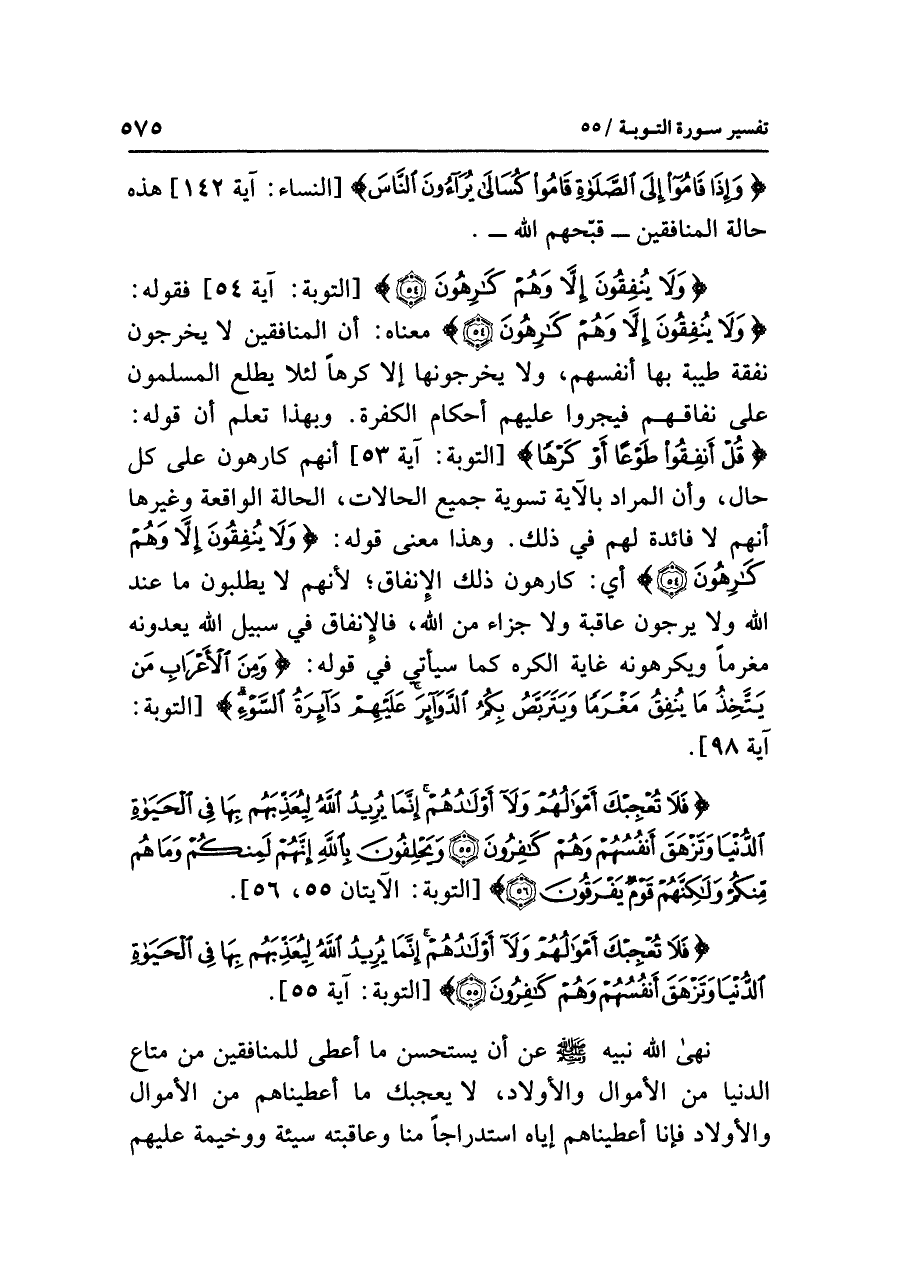 تفسير سورة التوبة / ٥٥ ٥٧٥
﴿ وَإِذَا قَامُوٓاْ إِلَى ٱلصَّلَوٰةِ قَامُواْ كُسَالَىٰ يُرَآءُونَ ٱلنَّاسَ﴾ [النساء: آية ١٤٢] هذه
حالة المنافقين ــ قبّحهم الله ــ .
﴿وَلَا يُنفِقُونَ إِلَّا وَهُمْ كَـٰرِهُونَ ۝٥٤﴾ [التوبة: آية ٥٤] فقوله:
﴿ وَلَا يُنفِقُونَ إِلَّا وَهُمْ كَـٰرِهُونَ ۝٥٤﴾ معناه: أن المنافقين لا يخرجون
نفقة طيبة بها أنفسهم، ولا يخرجونها إلا كرهاً لئلا يطلع المسلمون
على نفاقهم فيجروا عليهم أحكام الكفرة. وبهذا تعلم أن قوله:
﴿ قُلْ أَنفِقُواْ طَوْعًا أَوْ كَرْهًا﴾ [التوبة: آية ٥٣] أنهم كارهون على كل
حال، وأن المراد بالآية تسوية جميع الحالات، الحالة الواقعة وغيرها
أنهم لا فائدة لهم في ذلك. وهذا معنى قوله: ﴿ وَلَا يُنفِقُونَ إِلَّا وَهُمْ
كَـٰرِهُونَ ۝٥٤﴾ أي: كارهون ذلك الإنفاق؛ لأنهم لا يطلبون ما عند
الله ولا يرجون عاقبة ولا جزاء من الله، فالإنفاق في سبيل الله يعدونه
مغرماً ويكرهونه غاية الكره كما سيأتي في قوله: ﴿ وَمِنَ ٱلْأَعْرَابِ مَن
يَتَّخِذُ مَا يُنفِقُ مَغْرَمًا وَيَتَرَبَّصُ بِكُمُ ٱلدَّوَآئِرَۚ عَلَيْهِمْ دَآئِرَةُ ٱلسَّوْءِۗ﴾ [التوبة:
آية ٩٨].
﴿ فَلَا تُعْجِبْكَ أَمْوَٰلُهُمْ وَلَآ أَوْلَـٰدُهُمْۚ إِنَّمَا يُرِيدُ ٱللَّهُ لِيُعَذِّبَهُم بِهَا فِى ٱلْحَيَوٰةِ
ٱلدُّنْيَا وَتَزْهَقَ أَنفُسُهُمْ وَهُمْ كَـٰفِرُونَ ۝٥٥ وَيَحْلِفُونَ بِٱللَّهِ إِنَّهُمْ لَمِنكُمْ وَمَا هُم
مِّنكُمْ وَلَـٰكِنَّهُمْ قَوْمٌ يَفْرَقُونَ ۝٥٦﴾ [التوبة: الآيتان ٥٥، ٥٦].
﴿ فَلَا تُعْجِبْكَ أَمْوَٰلُهُمْ وَلَآ أَوْلَـٰدُهُمْۚ إِنَّمَا يُرِيدُ ٱللَّهُ لِيُعَذِّبَهُم بِهَا فِى ٱلْحَيَوٰةِ
ٱلدُّنْيَا وَتَزْهَقَ أَنفُسُهُمْ وَهُمْ كَـٰفِرُونَ ۝٥٥﴾ [التوبة: آية ٥٥].
نهىٰ الله نبيه ﷺ عن أن يستحسن ما أعطى للمنافقين من متاع
الدنيا من الأموال والأولاد، لا يعجبك ما أعطيناهم من الأموال
والأولاد فإنا أعطيناهم إياه استدراجاً منا وعاقبته سيئة ووخيمة عليهم